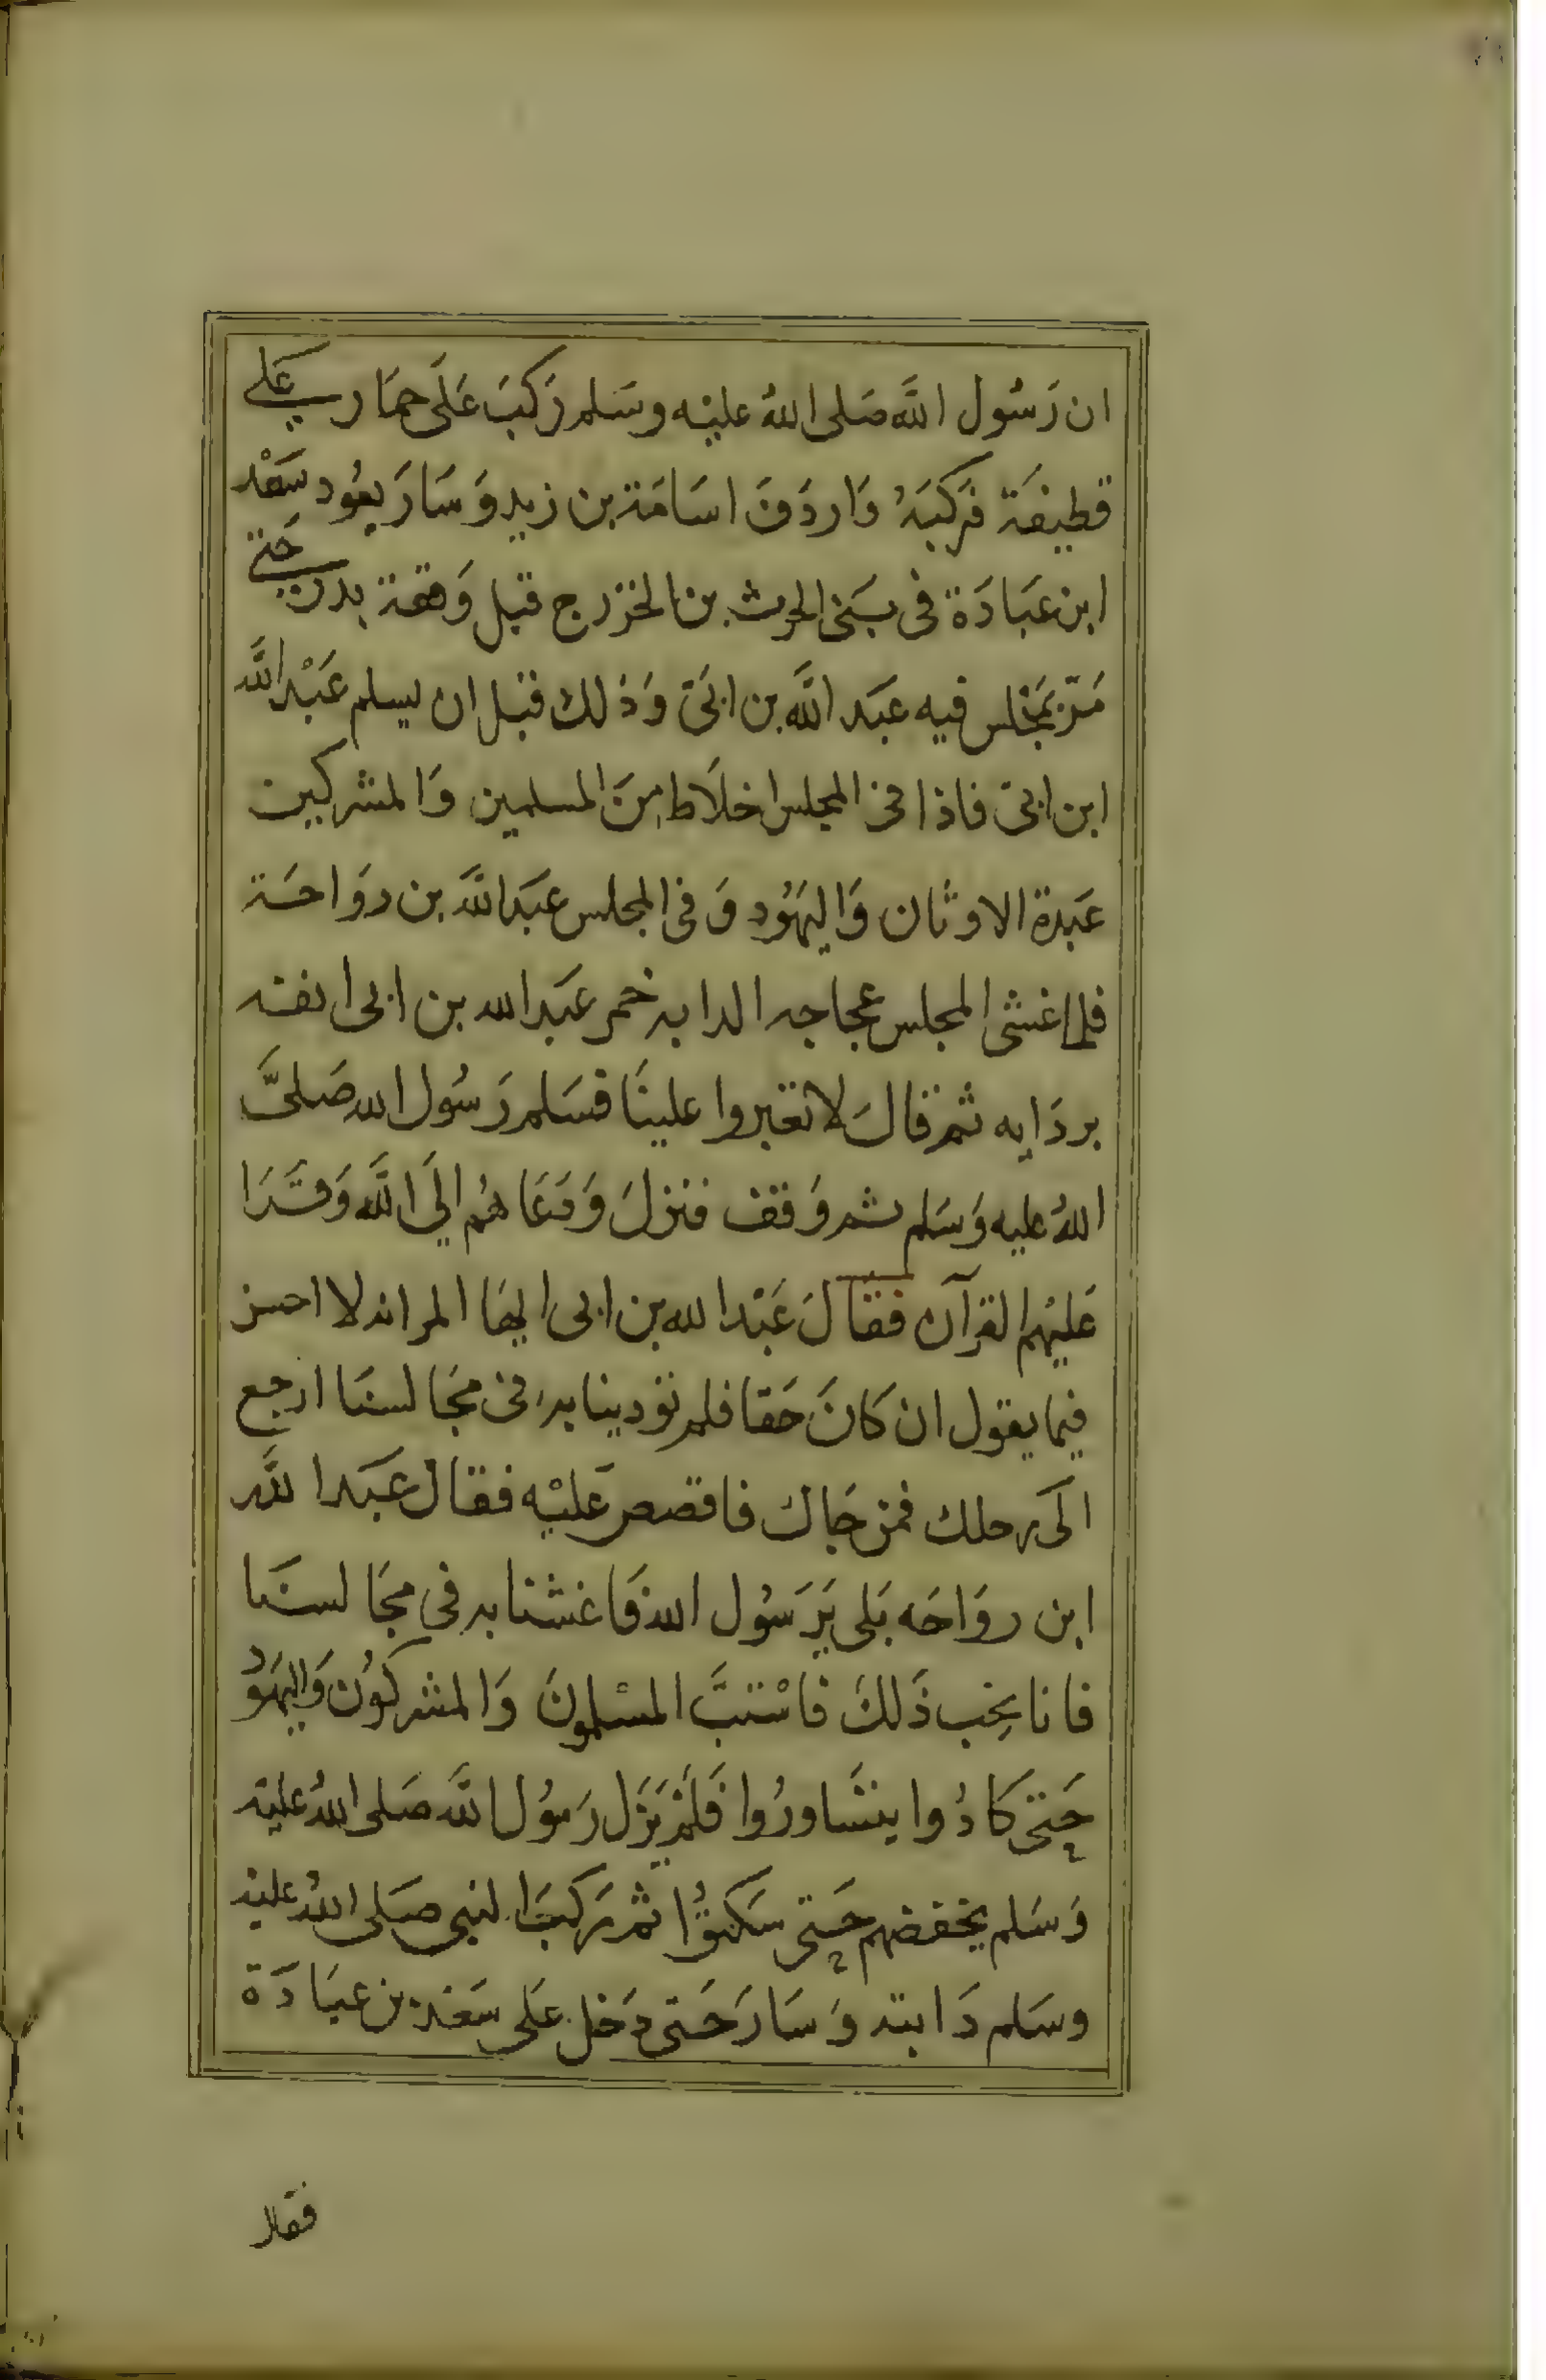 ان رَسُول اللَّه صَلى اللهُ عليْه وسَلم رَكبَ عَلَى حمَار عَلى
قطيفَة فَركبَهُ وَاردَفَ اسَامَة بن زيد وَسَارَ يعُود سَعْد
ابن عبَادَة فى بَنى الحرث بن الخزرج قبل وَقعة بدر حَتى
مَرّ بمَجْلس فيه عبَد اللَّه بن ابَىّ وَذلك قبل ان يسلم عَبْد اللَّه
ابن ابىّ فاذا فى المجلس اخلَاط مِنَ المسلمين وَالمشركين
عَبدة الاوثان وَاليهُود وَفى المجلس عبَد اللَّه بن روَاحَة
فلما غشى المجلس عجاجه الدابه خمر عبَد الله بن ابى انفه
بردَايه ثم قالَ لا تغبروا علينَا فسَلم رَسُول الله صَلىَّ
اللهُ عليه وَسَلم ثم وَقف فنزلَ وَدَعَاهُم الَي اللَّه وَقَرَا
عَليْهم القرآن فقالَ عَبْد الله بن ابى ايهَا المرانه لا احسن
فيما يقول ان كَانَ حَقا فلم تؤدينا به فى مجَالسنَا ارجع
الَى رحلك فمن جَاك فاقصص عَليْه فقال عبَد اللَّه
ابن روَاحَه بَلى يَرَسُول الله فَاغشنا به فى مجَالسنَا
فانا نحِب ذَلكَ فاسْتبَّ المسْلمونَ وَالمشركوُن وَاليهَوُد
حَتى كادُوا يتشَاورُوا فَلَمْ يَزَل رَسُول اللَّه صَلى اللهُ عليْه
وَسَلم يخفضهم حَتى سَكنوُا ثم رَكبَ النبى صَلى اللهُ عليْه
وسَلم دَابته وَسَارَ حَتى دَخل عَلى سَعْد بن عبَادَة
فقال